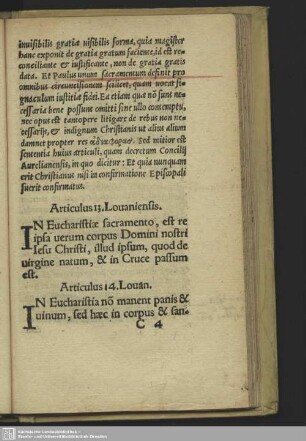 inuisibilis gratiæ uisibilis forma, quia magister
hanc exponit de gratia gratum faciente, id est re-
conciliante & iustificante, non de gratia gratis
data. Et Paulus unum sacramentum definit pro
omnibus circuncisionem scilicet, quam uocat si-
gnaculum iustitiæ fidei. Ea etiam quæ nõ sunt ne-
cessaria bene possunt omitti sine ullo contemptu,
nec opus est tantopere litigare de rebus non ne-
cessarijs, & indignum Christianis ut alius alium
damnet propter res ἀδιαφόρους. Sed mitior est
sententia huius articuli, quam decretum Concilij
Aurelianensis, in quo dicitur: Et quia nunquam
erit Christianus nisi in confirmatione Episcopali
fuerit confirmatus.
Articulus 13. Louaniensis.
IN Eucharistiæ sacramento, est re
ipsa uerum corpus Domini nostri
Iesu Christi, illud ipsum, quod de
uirgine natum, & in Cruce passum
est.
Articulus 14. Louan.
IN Eucharistia nõ manent panis &
uinum, sed hæc in corpus & san-
C 4